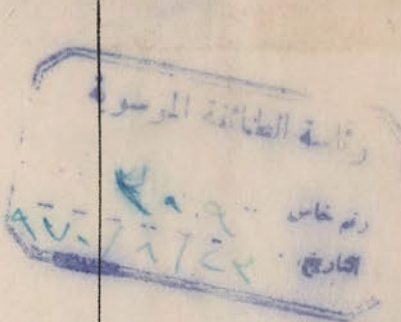 رئاسة الطائفة الموسوية
رقم خاص ٣٠٩
التاريخ ٢٣ / ٨ / ٩٧٠